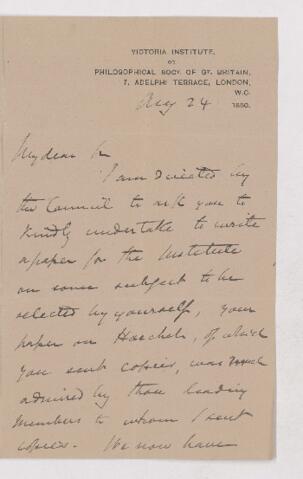 VICTORIA INSTITUTE,
OR
PHILOSOPHICAL SOCY. OF GT. BRITAIN,
7, ADELPHI TERRACE, LONDON,
W.C.
Aug 24 1880.
My dear Sir
I am directed by
the Council to ask you to
kindly undertake to write
a paper for the Institute
on some subject to be
selected by yourself, your
paper on Haeckel, of which
you sent copies, was much
admired by those leading
members to whom I sent
copies. We now have